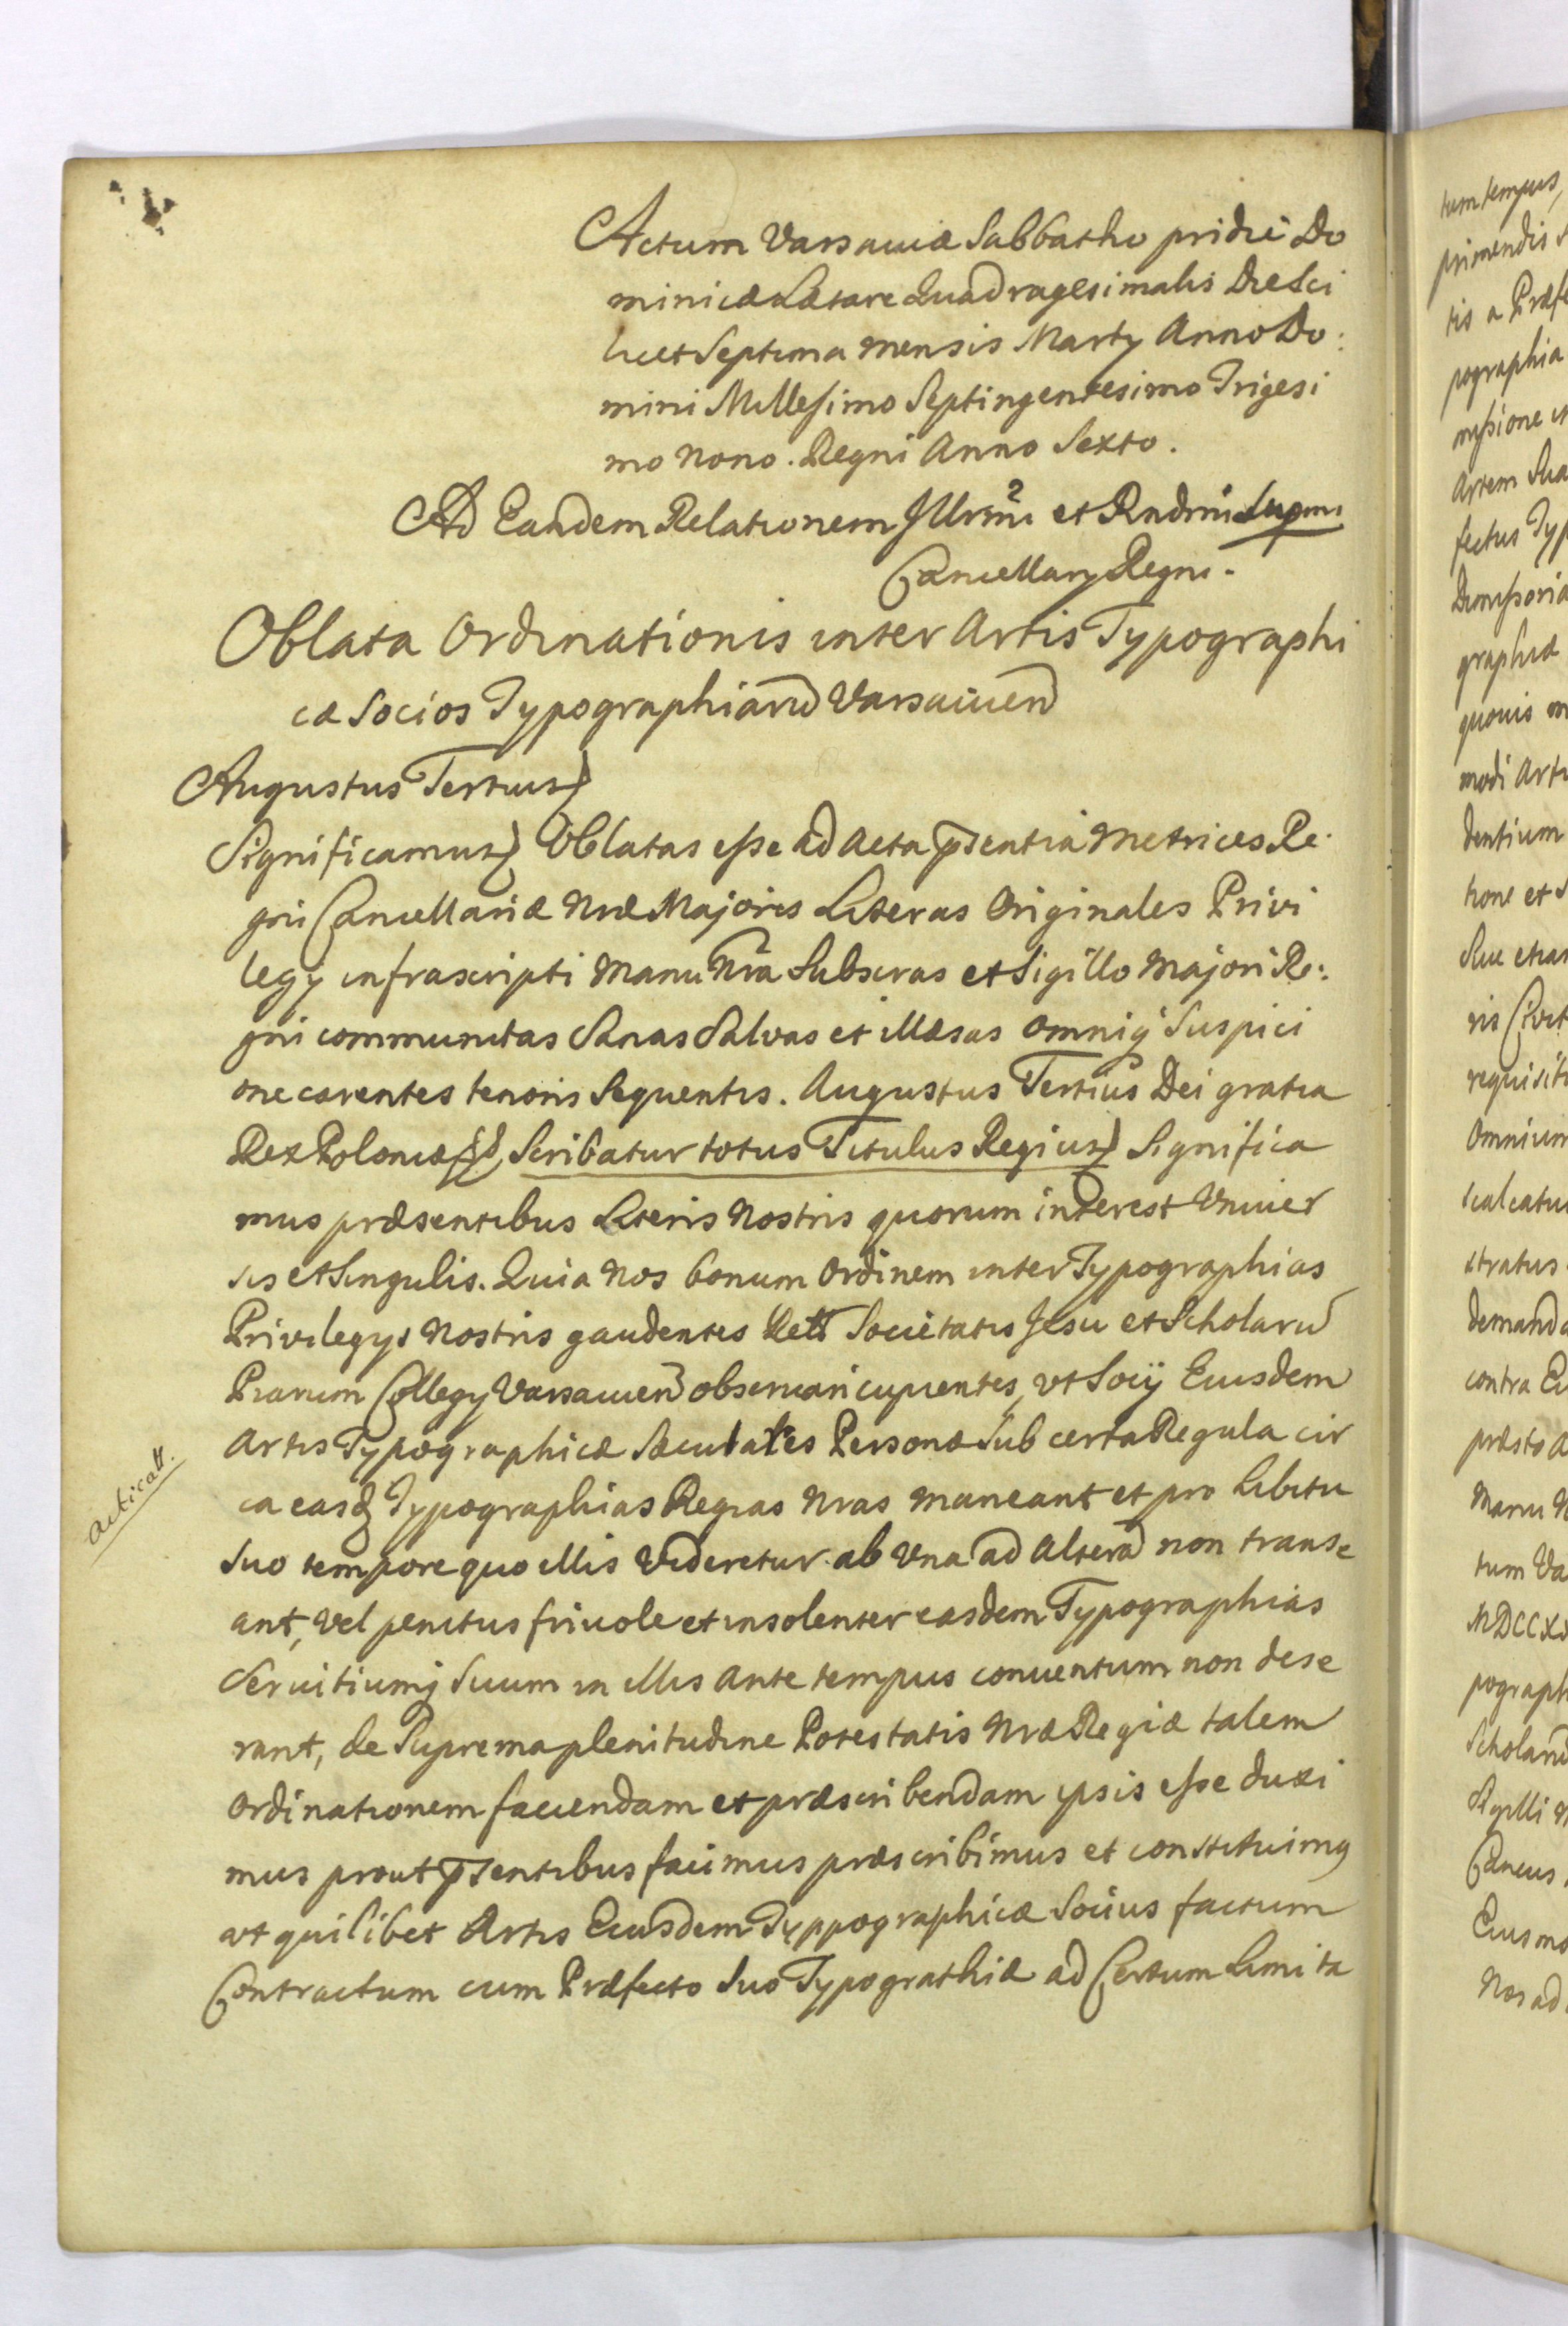 Actum Varsaviæ Sabbatho pridie Do
minicæ Lætare Quadragesimalis Die Sci
licet Septima mensis Martÿ Anno Do:
mini Millesimo Septingentesimo Trigesi
mo nono. Regni Anno Sexto.
Ad Eandem Relationem Illrmi et Rndmi Supmi
Cancellarÿ Regni.
Oblata Ordinationis inter Artis Typographi
cæ Socios Typographiarū Varsavien
Augustus Tertius
Significamus Oblatas esse ad Acta p̄sentia Metrices Re
gni Cancellariæ Nræ Majoris Literas Originales Privi
legÿ infrascripti Manu Nra Subscras et Sigillo Majori Re:
gni communitas Sanas Salvas et illæsas omniq̄ Suspici
one carentes tenoris Sequentis. Augustus Tertius Dei gratia
Rex Poloniæ Scribatur totus Titulus Regius Significa
mus præsentibus Literis Nostris quorum interest Univer
sis et Singulis. Quia Nos bonum Ordinem inter Typographias
Privilegÿs Nostris gaudentes Societatis Jesu et Scholarū
Piarum Collegÿ Varsavien observari cupientes, ut Socÿ Eiusdem
Artis Typographicæ Sæculares Personæ Sub certa Regula cir
ca easd Typographias Regias Nras maneant et pro Libitu
Suo tempore quo illis Videretur ab Una ad Alterā non transe
ant, Vel penitus frivole et insolenter easdem Typographias
Servitiumq̄ Suum in illis Ante tempus conventum non dese
rant, de Suprema plenitudine Potestatis Nræ Regiæ talem
Ordinationem faciendam et præscribendam ipsis esse duxi
mus prout p̄sentibus facimus præscribimus et constituimg
ut quilibet Artis Eiusdem Typpographicæ Socius factum
Contractum cum Præfecto Suo Typograthiæ ad Certum Limita
acticatt.
tum tempus,
primendis
tis a Præfe
pographia
Artem Sua
fectus Typ
graphiæ
quovis
modi Arti
dentium
tione et S
ris Civit
requisit
Omnium
stratus
demanda
contra Ei
præsto
Manu
tum Va
MDCCX
pograph
Scholarū
Sigilli
Cancus
Eius mo
Nos ad